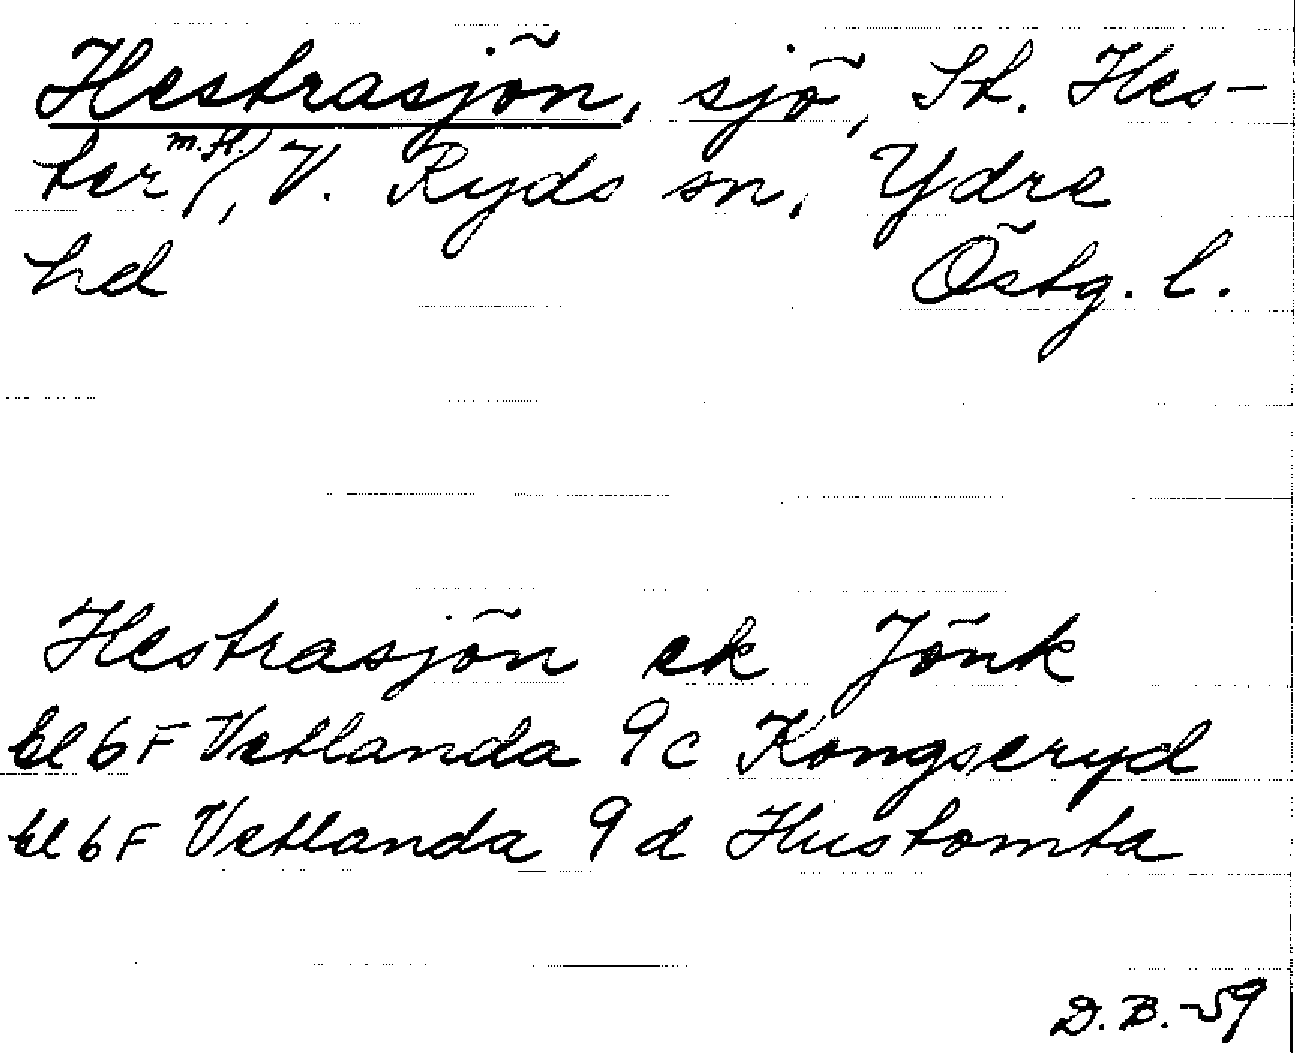 Hestrasjön, sjö, St. Hes-
ter m.fl., V. Ryds sn, Ydre
hd Östg. l.
Hestrasjön ek Jönk
bl 6 F Vetlanda 9 c Kongseryd
bl 6 F Vetlanda 9 d Hustomta
D.B.-59